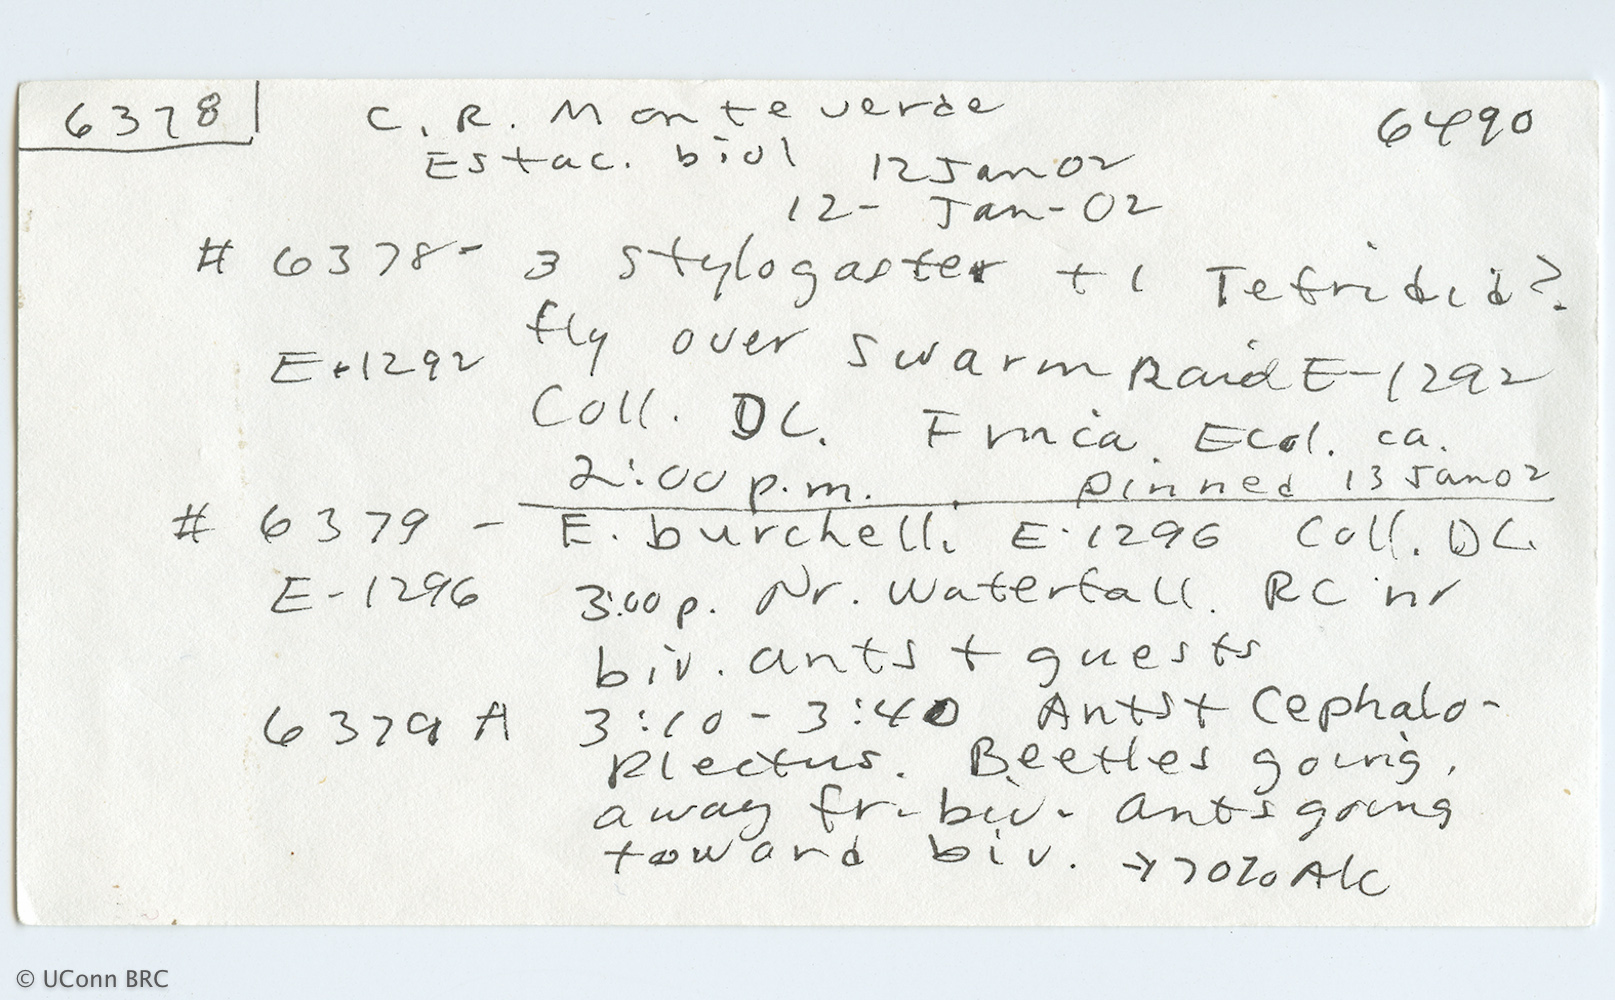 6378 C.R. Monteverde 6490
Estac. biol 12Jan02
12-Jan-02
# 6378- 3 Stylogaster + 1 Tefridid?
fly over swarm Raid E-1292
E-1292
Coll. DC. Frnca. Ecol. ca.
2:00 p.m. pinned 13Jan02
# 6379 - E. burchelli E-1296 Coll. DC
E-1296 3:00p. Nr. Waterfall. RC nr
biv. ants + guests
6379A 3:10-3:40 Ants + Cephalo-
plectus. Beetles going
away fr. biv. Ants going
toward biv. → 70% Alc
© UConn BRC